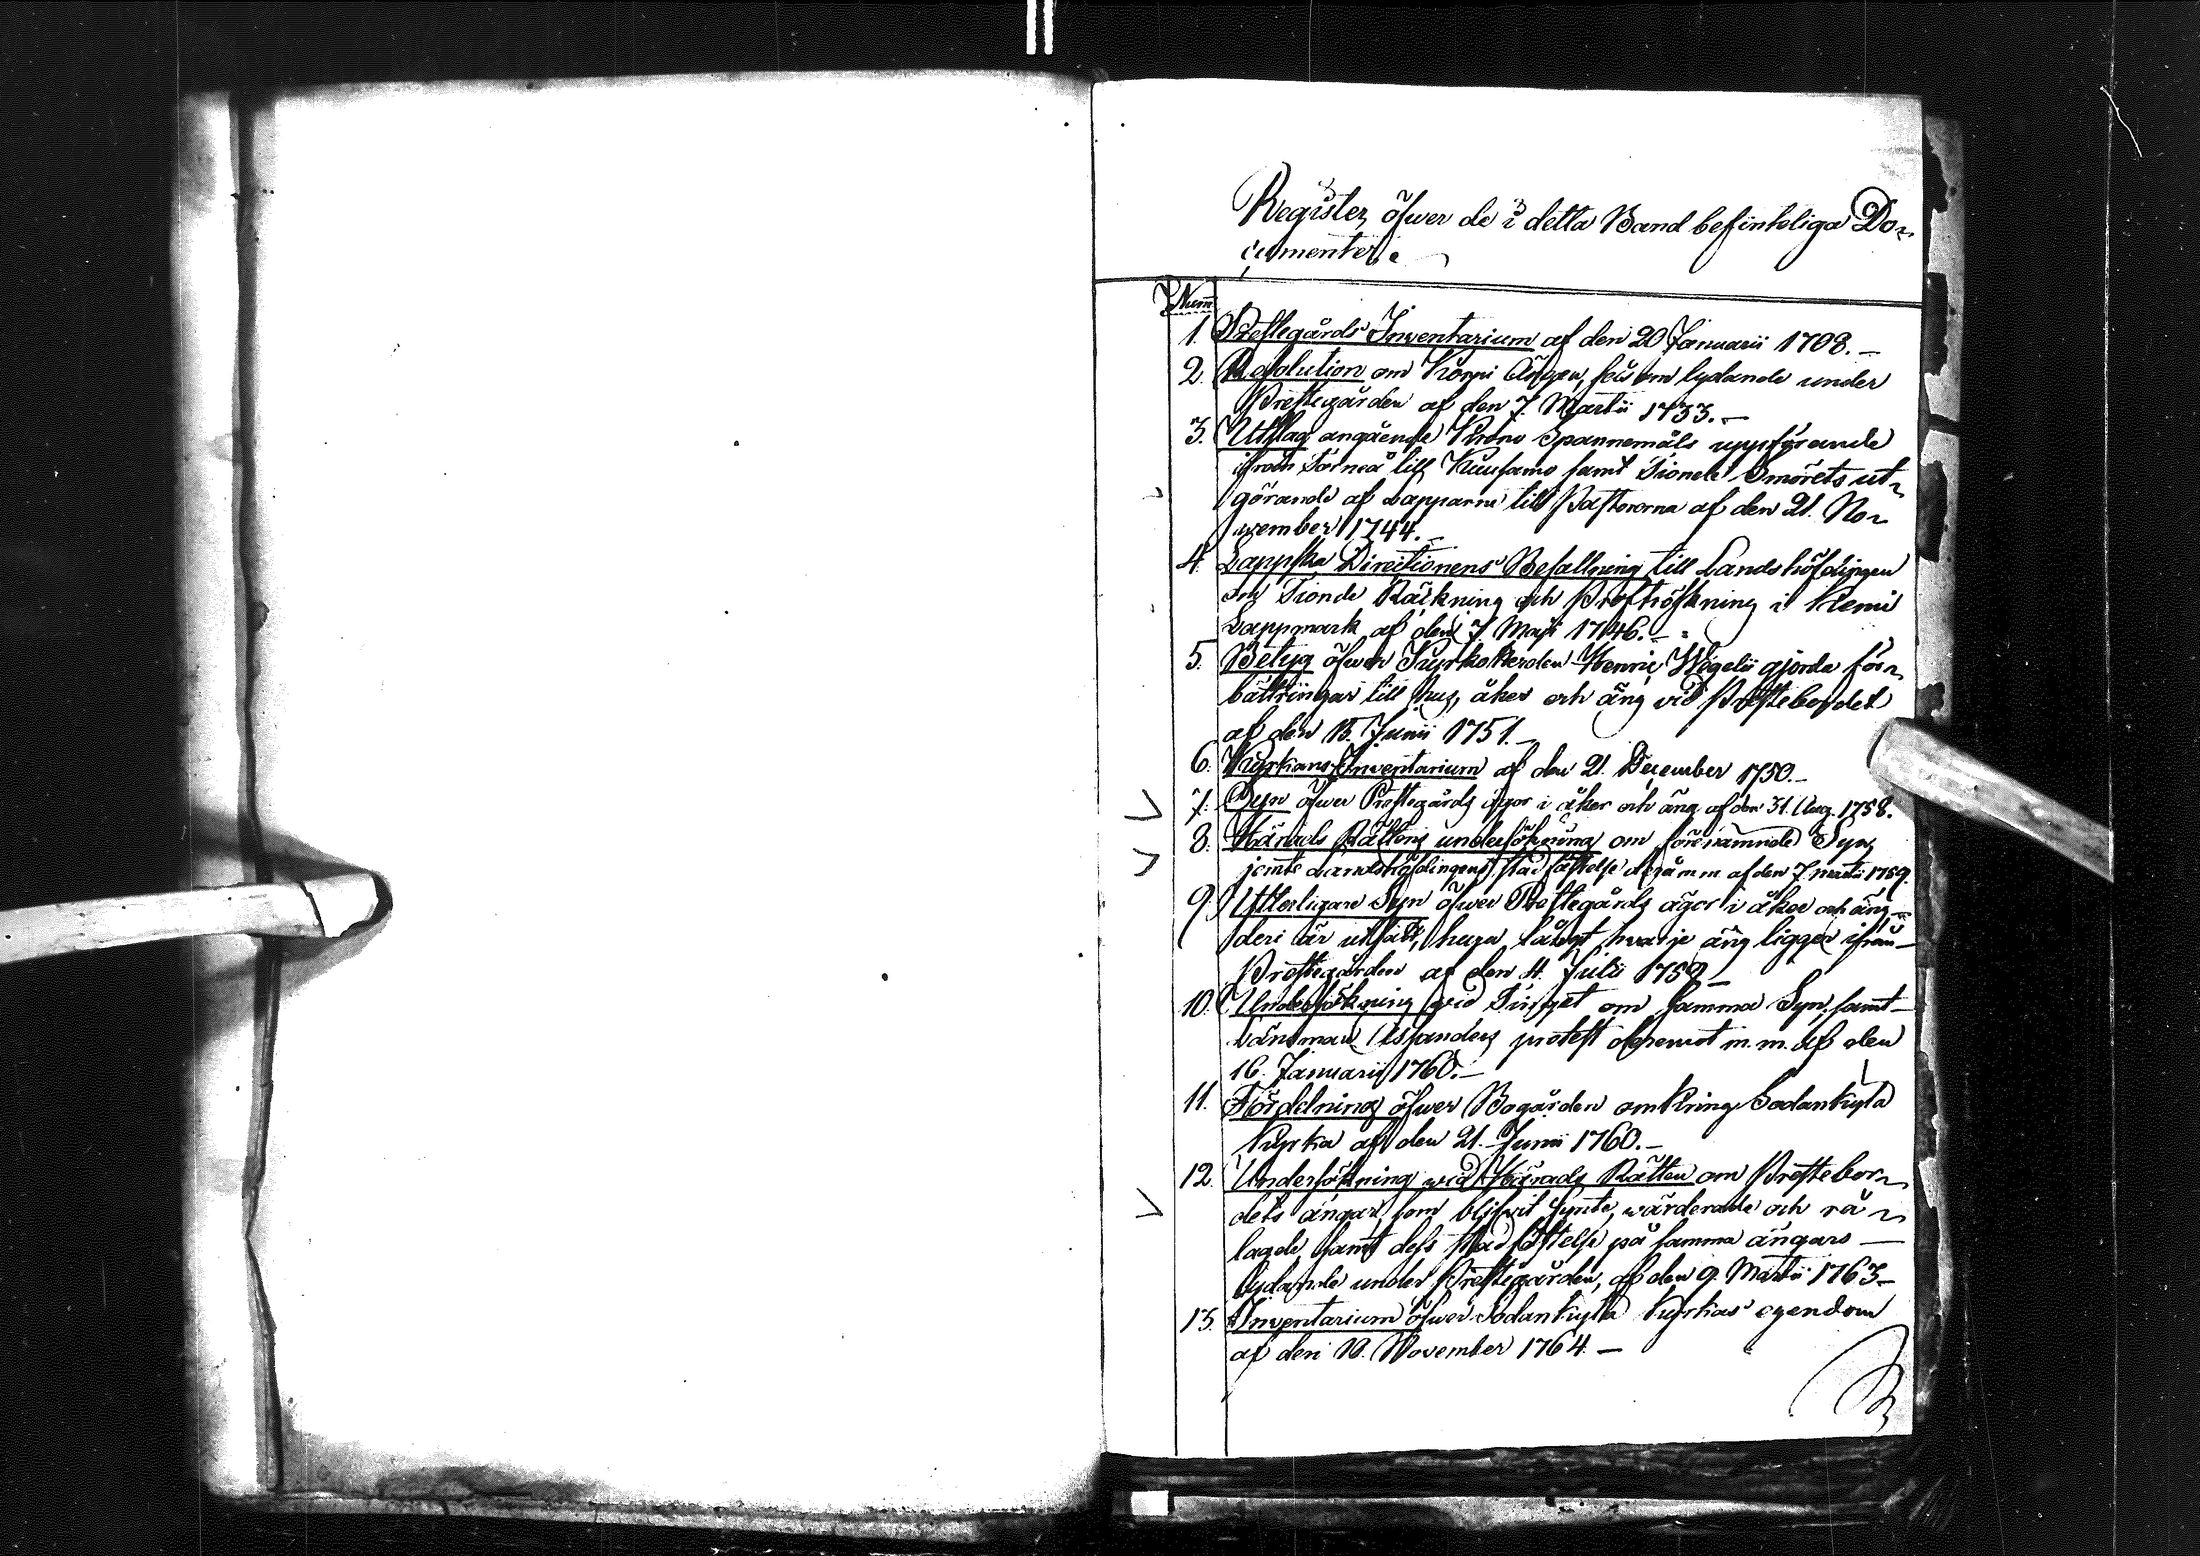 Register öfwer de i detta Band befinteliga Do-
cumenter.
Num
1. Prestegårds Inventarium af den 20 Januarii 1708.
2. Resolution om Korpi Ängen, såsom lydande under
Prestegården af den 7. Martii 1733.
3. Utslag angående Krono Spannemåls uppförande
ifrån Torneå till Kuusamo samt Tionde Smörets ut-
görande af Lapparne till Pastorerna af den 21. No-
vember 1744.
4. Lappska Directionens Befallning till Landshöfdingen
om Tionde Räckning och i Kemi
Lappmark af den 7. Maji 1746.
5. Betyg öfwer Kyrkoherden Henric Wegelii gjorda för-
bättringar till hus, åker och äng vid Prestebordet
af den 15. Junii 1751.
6. Kyrkans Inventarium af den 21. December 1750.
7. Syn öfwer Prestegårds ägor i åker och äng af den 31. Aug. 1758.
8. Härads Rättens undersökning om förenämnde Syn,
jemte Landshöfdingens stadfästelse deråmm af den 7 martii 1759.
9. Ytterligare Syn öfwer Prestegårds ägor i åker och äng
deri är utsatt, huru långt hvarje äng ligger ifrån
Prestegården af den 4. Julii 1759
10. Undersökning wid Tinget om samma Syn, samt
Länsman protest deremot m.m. af den
16. Januarii 1760.
11. Fördelning öfwer Bogården omkring Sodankylä
Kyrka af den 21. Junii 1760.
12. Undersökning wid Härads Rätten om Prestebor-
dets ängar, som blifwit synte, wärderade och rå-
lagde, samt dess stadfästelse på samma ängars
lydande under Prestegården, af den 9. Martii 1763
13. Inventarium öfwer Sodankylä Kyrkas egendom
af den 10. November 1764